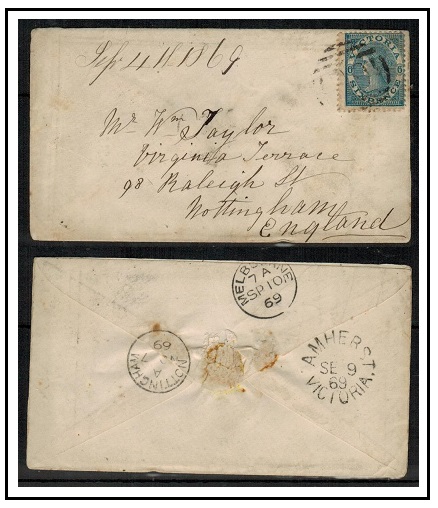 Sep 4th 1869
VICTORIA
6 6
SIXPENCE
Mr Wm Taylor
Virginia Terrace
98 Raleigh St
Nottingham
England
MELBOURNE
7 A
SP 10
69
NOTTINGHAM
A
69
AMHERST,
SE 9
69
VICTORIA